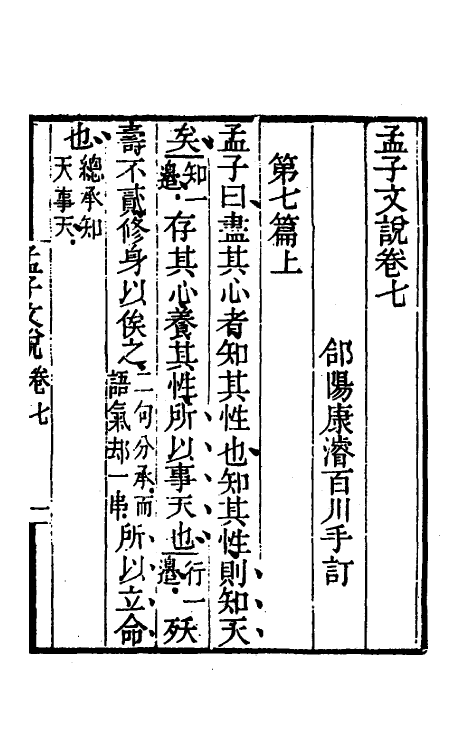 孟子文說卷七
郃陽康濬百川手訂
第七篇上
孟子曰盡其心者知其性也知其性則知天
矣知一邊存其心養其性所以事天也行一邊殀
壽不貳修身以俟之二句分承而語氣却一串所以立命
也總承知天事天
孟子文說 卷七 一